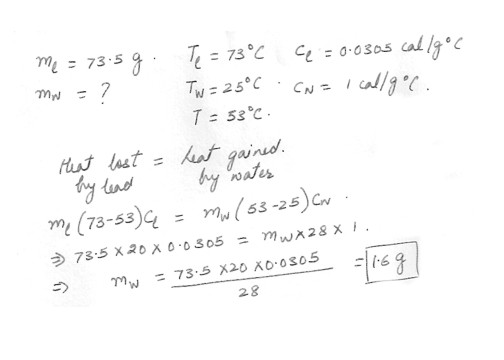 mℓ = 73.5 g. Tℓ = 73°C Cℓ = 0.0305 cal/g°C
mw = ? Tw = 25°C. CN = 1 cal/g°C.
T = 53°C.
Heat lost = heat gained.
by lead by water
mℓ (73-53)Cℓ = mw (53-25) Cw.
⇒ 73.5 × 20 × 0.0305 = mw × 28 × 1.
⇒ mw = 73.5 × 20 × 0.0305 / 28 = 1.6 g